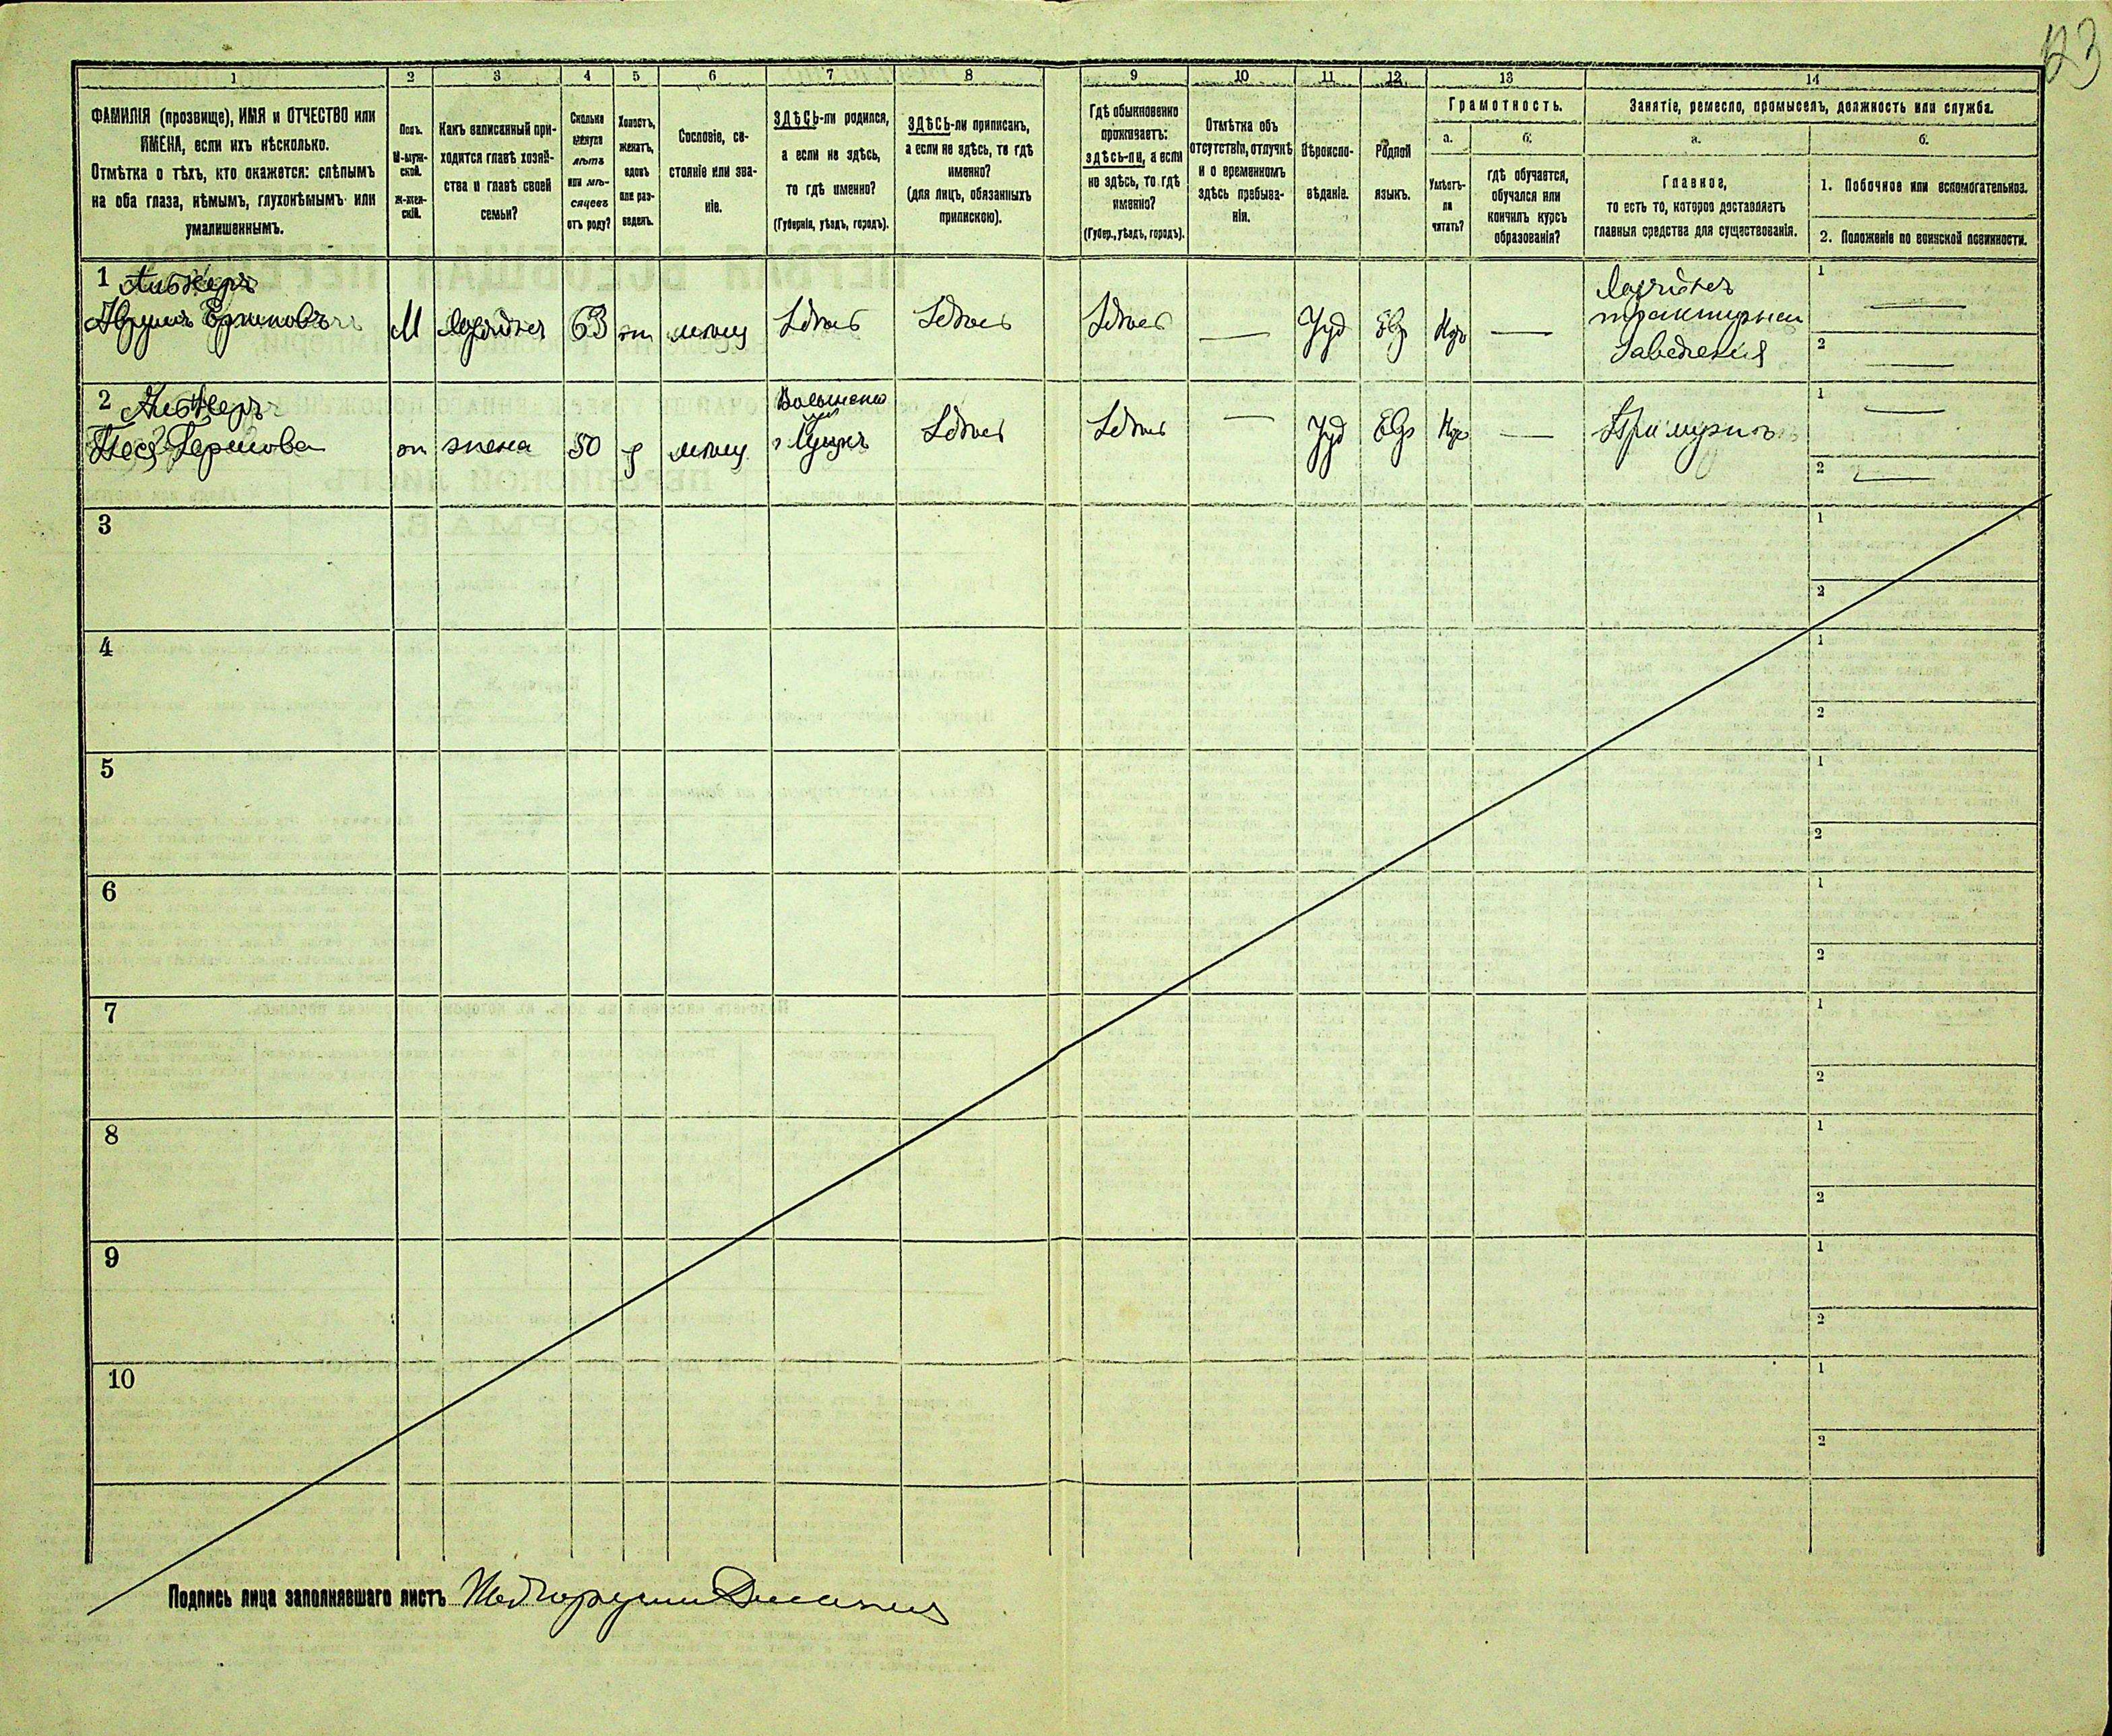 123
1
2
3
4
5
6
7
8
9
10
11
12
13
14
ФАМИЛІЯ (прозвище), ИМЯ и ОТЧЕСТВО или
ИМЕНА, если ихъ нѣсколько.
Отмѣтка о тѣхъ, кто окажется: слѣпымъ
на оба глаза, нѣмымъ, глухонѣмымъ или
умалишеннымъ.
Полъ.
М-муж-
ской.
Ж-жен-
скій.
Какъ записанный при-
ходится главѣ хозяй-
ства и главѣ своей
семьи?
Сколько
минуло
лѣтъ
или мѣ-
сяцевъ
отъ роду?
Холостъ,
женатъ,
вдовъ
или раз-
веденъ.
Сословіе, со-
стояніе или зва-
ніе.
ЗДѢСЬ-ли родился,
а если не здѣсь,
то гдѣ именно?
(Губернія, уѣздъ, городъ).
ЗДѢСЬ-ли приписанъ,
а если не здѣсь, то гдѣ
именно?
(для лицъ, обязанныхъ
припискою).
Гдѣ обыкновенно
проживаетъ:
здѣсь-ли, а если
не здѣсь, то гдѣ
именно?
(Губер., уѣздъ, городъ).
Отмѣтка объ
отсутствіи, отлучкѣ
и о временномъ
здѣсь пребыва-
ніи.
Вѣроиспо-
вѣданіе.
Родной
языкъ.
Грамотность.
а.
Умѣетъ-
ли
читать?
б.
гдѣ обучается,
обучался или
кончилъ курсъ
образованія?
Занятіе, ремесло, промыселъ, должность или служба.
а.
Главное,
то есть то, которое доставляетъ
главныя средства для существованія.
б.
1. Побочное или вспомогательное.
2. Положеніе по воинской повинности.
1
М
63
Здѣсь
Здѣсь
Здѣсь
—
Іуд
Евр
—
трактирнаго
заведенія
1 —
2 —
2
жена
50
Волынской
г Луцкъ
Здѣсь
Здѣсь
—
Іуд
Евр
—
При мужѣ
1 —
2 —
3
1
2
4
1
2
5
1
2
6
1
2
7
1
2
8
1
2
9
1
2
10
1
2
Подпись лица заполнявшаго листъ